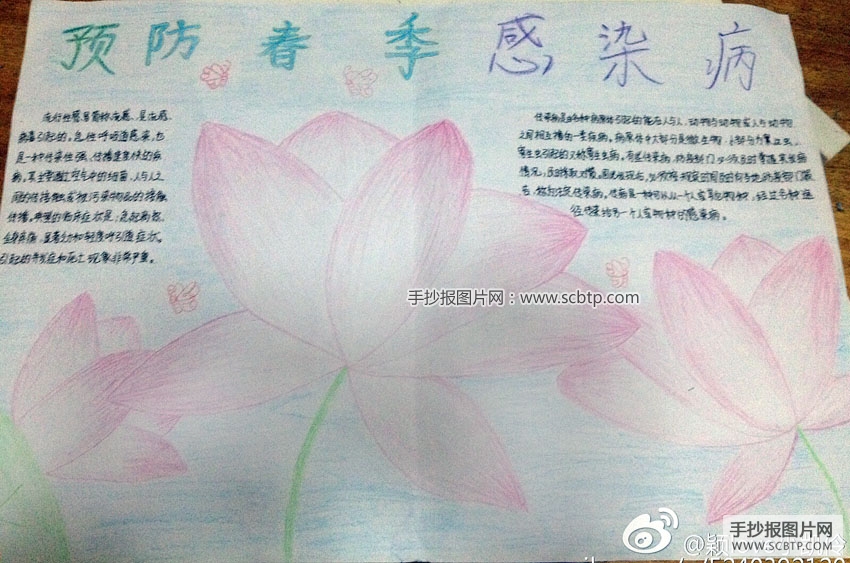 预防春季感染病
流行性感冒简称流感,是流感
病毒引起的急性呼吸道感染,也
是一种传染性强、传播速度快的疾
病,其主要通过空气中的
人与人之
间的接触或与被污染物品的接触
传播。典型的临床症状是:急起高热、
全身疼痛、显著乏力和轻度呼吸道症状。
引起的并发症和死亡现象非常严重。
传染病是由各种病原体引起的能在人与人、动物与动物或人与动物
之间相互传播的一类疾病。病原体中大部分是微生物,小部分为寄生虫,
寄生虫引起的又称寄生虫病。有些传染病,防疫部门必须及时掌握其发病
情况,及时采取对策,因此发现后,必须按规定时间及时向当地防疫部门报
告,称为法定传染病。
经过各种途
径传染给另一个人或物种的感染病。
手抄报图片网:www.scbtp.com
手抄报图片网
WWW.SCBTP.COM